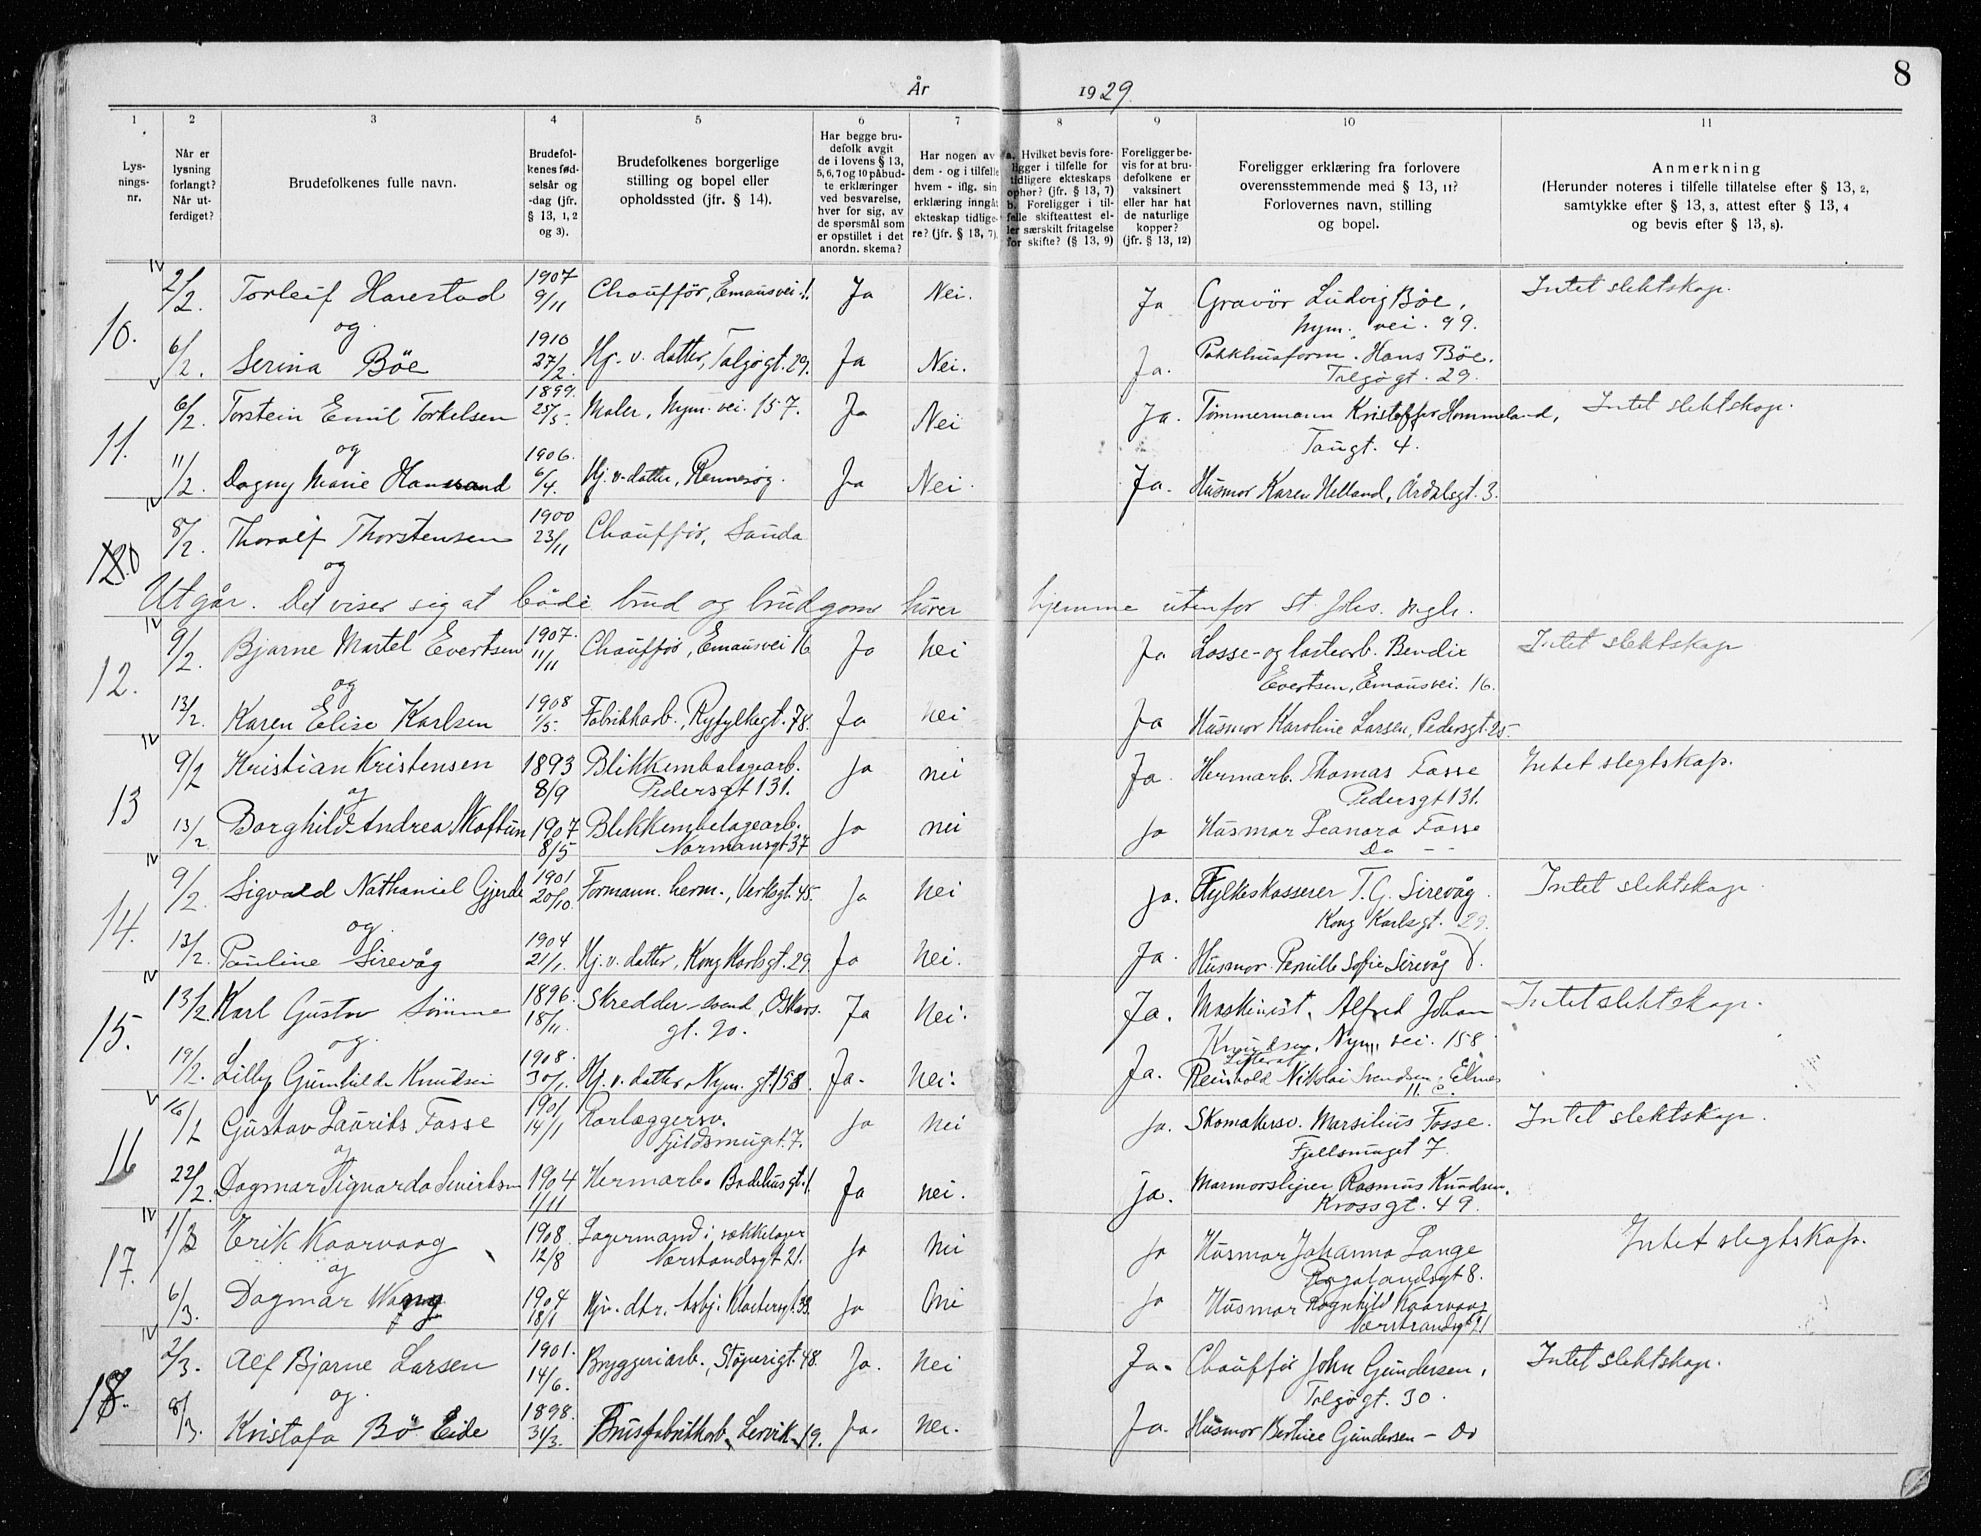 År 1929 8
1 2 3 4 5 6 7 8 9 10 11
Lysningsnr.
Når er lysning forlangt? Når utferdiget?
Brudefolkenes fulle navn.
Brudefolkenes fødselsår og -dag (jfr. § 13, 1, 2 og 3).
Brudefolkenes borgerlige stilling og bopel eller opholdssted (jfr. § 14).
Har begge brudefolk avgit de i lovens § 13, 5, 6, 7 og 10 påbudte erklæringer ved besvarelse, hver for sig, av de spørsmål som er opstillet i det anordn. skema?
Har nogen av dem - og i tilfelle hvem - iflg. sin erklæring inngåt ekteskap tidligere? (jfr. § 13, 7).
a. Hvilket bevis foreligger i tilfelle for tidligere ekteskaps ophør? (jfr. § 13, 7) b. Foreligger i tilfelle skifteattest eller særskilt fritagelse for skifte? (§ 13, 9)
Foreligger bevis for at brudefolkene er vaksinert eller har hat de naturlige kopper? (jfr. § 13, 12)
Foreligger erklæring fra forlovere overensstemmende med § 13, 11? Forlovernes navn, stilling og bopel.
Anmerkning (Herunder noteres i tilfelle tillatelse efter § 13, 2, samtykke efter § 13, 3, attest efter § 13, 4 og bevis efter § 13, 8).
10. 2/2. Torleif Harestad 1907 9/11 Chauffør, Emausvei 1. Ja Nei. Ja Gravør Ludvig Böe, Intet slektskap.
og Nym. vei. 99.
6/2. Serina Böe 1910 27/2. Hj. v. datter, Talgøgt. 29. Ja Nei. Ja. Pakkhusform. Hans Böe.
Talgøgt. 29.
11. 6/2. Torstein Emil Torkelsen 1899. 25/5- Maler, Nym. vei. 157. Ja Nei Ja. Tømmermann Kristoffer Hommeland, Intet slektskap.
og Taugt. 4.
11/2. Dagny Marie 1906. 6/4. Hj. v. datter, Rennesøy. Ja Nei. Ja. Husmor Karen Helland, Årdalsgt. 3.
8/2. Thoralf Thorstensen 1900 23/11 Chauffør, Sauda
og
Utgår. Det viser sig at både brud og brudgom hører hjemme utenfor St. Johs. mgh.
12. 9/2. Bjarne Martel Evertsen 1907. 11/11 Chauffør, Emausvei 16 Ja Nei Ja Losse- og lastearb. Bendix Intet slektskap
og Evertsen, Emausvei. 16.
13/2. Karen Elise Karlsen 1908 1/5. Fabrikkarb., Ryfylkegt. 78. Ja Nei Ja Husmor Karoline Larsen, Pedersgt. 25-
13 9/2 Kristian Kristensen 1893 8/9 Blikkembalagearb. Ja nei Ja. Hermarb. Thomas Fosse Intet slegtskap.
og Pedersgt 131. Pedersgt 131.
13/2 Borghild Andrea Skaftun 1907 8/5 Blikkembalagearb. Ja nei Ja Husmor Leonora Fosse
Normansgt 37 Do - -
14. 9/2. Sigvald Nathaniel Gjerde 1901 20/10. Formann. herm., Verksgt. 45. Ja Nei Ja. Fylkeskasserer T. G. Sirevåg. Intet slektskap
og. Kong Karlsgt. 29.
13/2. Pauline Sirevåg 1904 21/1. Hj. v. datter, Kong Karlsgt. 29. Ja Nei. Ja. Husmor Pernille Sofie Sirevåg
15. 13/2. Karl Gustav Sömme 1896. 18/11. Skredder-svend, Oskars- Ja Nei. Ja. Maskinist, Alfred Johan Intet slektskap.
og. gt. 20. Knudsen, Nym. vei. 158
19/2. Lilly Gunhilde Knudsen 1908. 30/1. Hj. v. datter, Nym. gt. 158. Ja. Nei. Ja. Reinhold Nikolai Svendsen,
16 16/2 Gustav Laurits Fosse 1901 14/1 Rørlæggersv. Ja Nei Ja. Skomakersv. Marselius Fosse. Intet slektskap.
og Fjeldsmuget. 7. Fjellsmuget 7.
22/2. Dagmar Sigvarda Sivertsen 1904 1/11 Hermarb. Badehusgt. 1. Ja nei. ja. Marmorsliper Rasmus Knudsen.
Krossgt. 49.
17. 1/3 Erik Kaarvaag 1908. 12/8 Lagermand i sækkelager Ja Nei Ja Husmor Johanna Lange Intet slegtskap.
og Nærstrandsgt 21. Rogalandsgt 8.
6/3. Dagmar 1904 18/1 Hjv. dtr. Asbj. Klostersgt. 38. Ja Nei Ja Husmor Ragnhild Kaarvaag
Nærstrandsgt 21
18. 2/3. Alf Bjarne Larsen 1901. 14/6. Bryggeriarb., Støperigt. 48. Ja. Nei Ja. Chauffør John Gundersen, Intet slektskap.
og. Talgøgt. 30.
8/3. Kristofa Bö Eide 1898. 31/3. Brusfabrikkarb. Lervik 19. Ja. Nei. Ja. Husmor Bertine Gundersen - Do